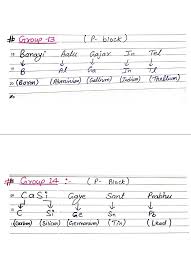 # Group-13 (P-block)
Bangyi Aalu Gajar In Tel
↓ ↓ ↓ ↓ ↓
B Al Ga In Tl
(Boron) (Aluminium) (Gallium) (Indium) (Thallium)
# Group 14 :- (P- Block)
CaSi Gaye Sant Prabhu
↓ ↓ ↓ ↓ ↓
C Si Ge Sn Pb
(Carbon) (Silicon) (Germanium) (Tin) (Lead)